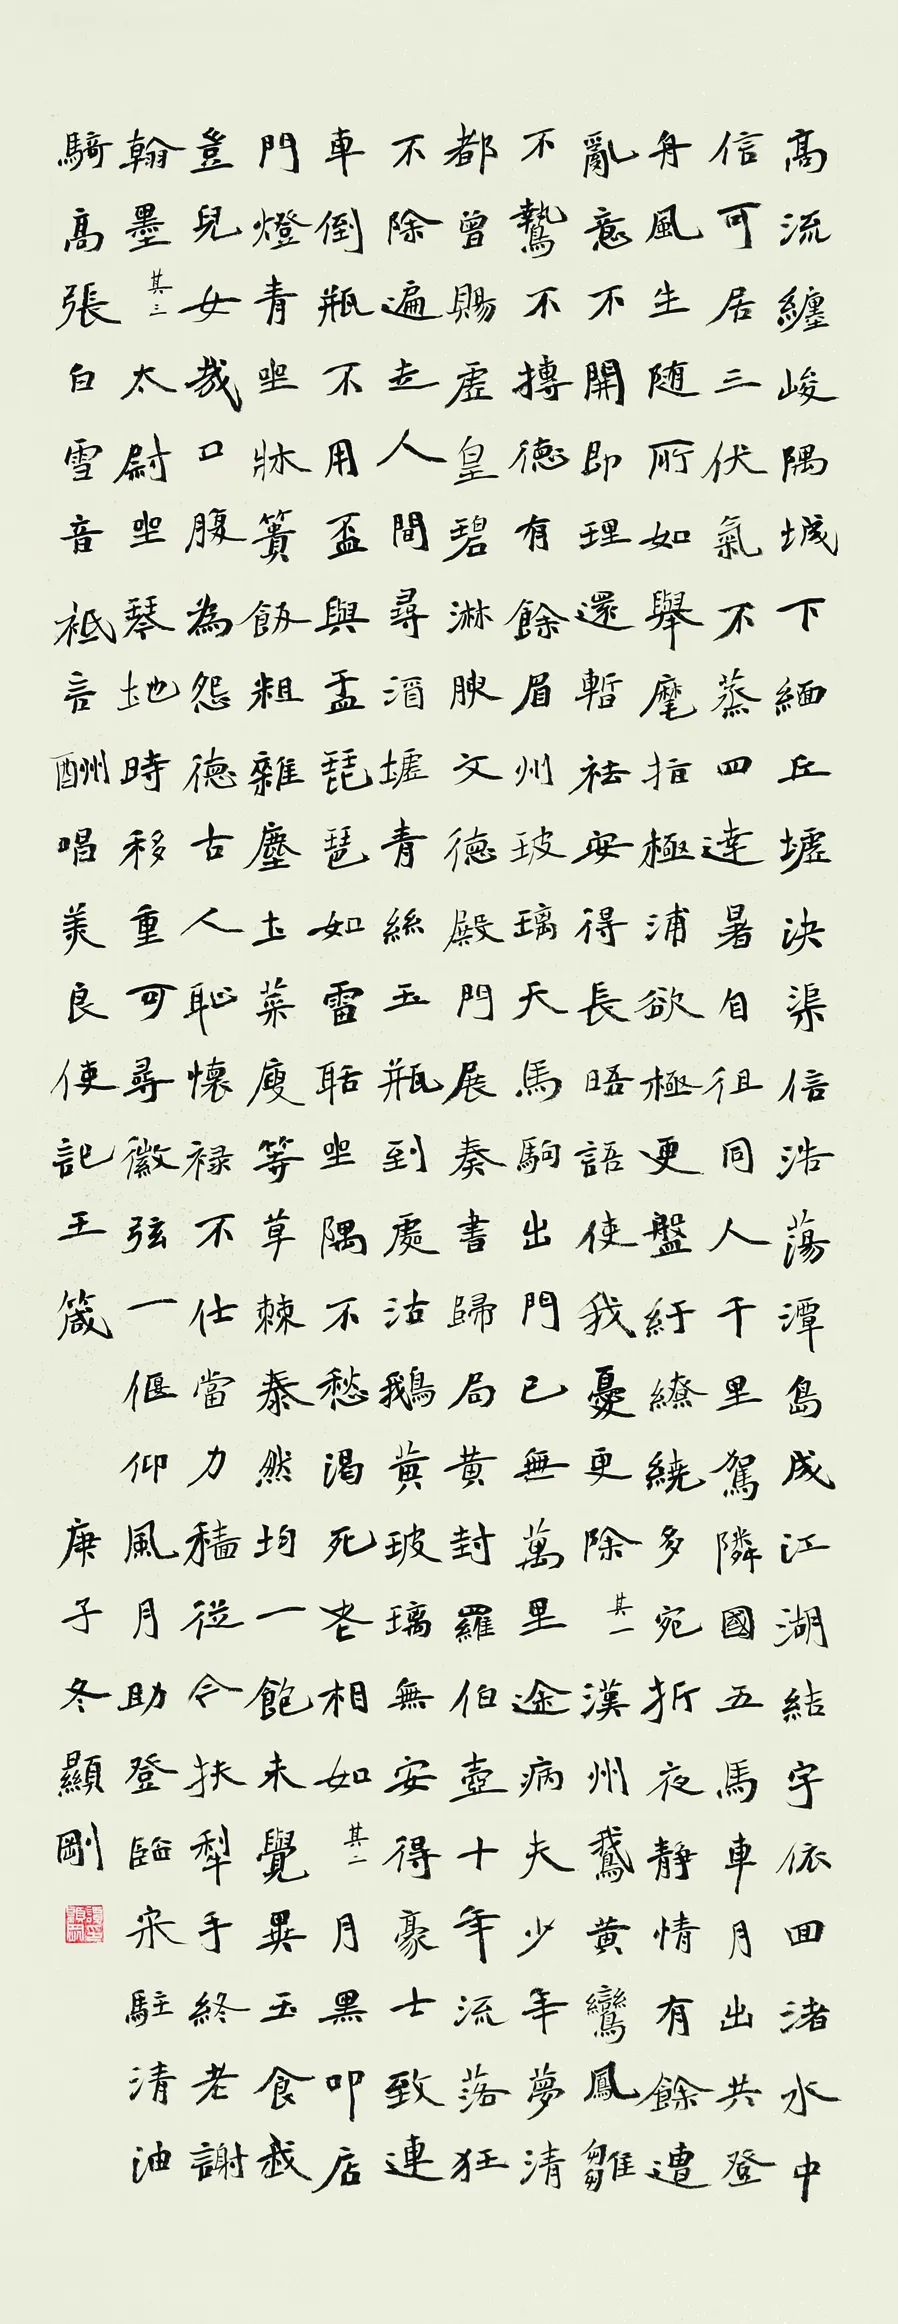 高流纏峻隅城下緬丘墟決渠信浩蕩潭島成江湖結宇依回渚水中
信可居三伏氣不蒸四達暑自徂同人千里駕隣國五馬車月出共登
舟風生随所如舉麾指極浦欲極更盤紆繚繞多宛折夜静情有餘遭
亂意不開即理還暫祛安得長晤語使我憂更除其一漢州鵝黄鸞鳳雛
不鷙不摶德有餘眉州玻璃天馬駒出門已無萬里途病夫少年夢清
都曾賜虛皇碧淋腴文德殿門展奏書歸局黄封羅伯壺十年流落狂
不除遍走人間尋酒壚青絲玉瓶到處沽鵝黄玻璃無安得豪士致連
車倒瓶不用盃與盂琵琶如雷聒坐隅不愁渴死老相如其二月黑叩店
門燈青坐牀簀飯粗雜塵土菜瘦等草棘泰然均一飽未覺異玉食我
豈兒女哉口腹為怨德古人恥懷禄不仕當力穡從令扶犁手終老謝
翰墨其三太尉坐琴地時移重可尋徽弦一偃仰風月助登臨寀駐清油
騎高張白雪音祇言酬唱美良使記王箴 庚子冬顯剛